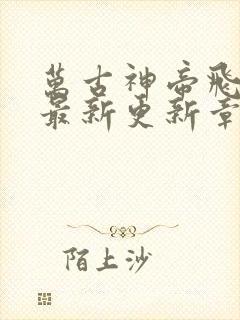 萬古神帝飛
最新更新章
陌上沙